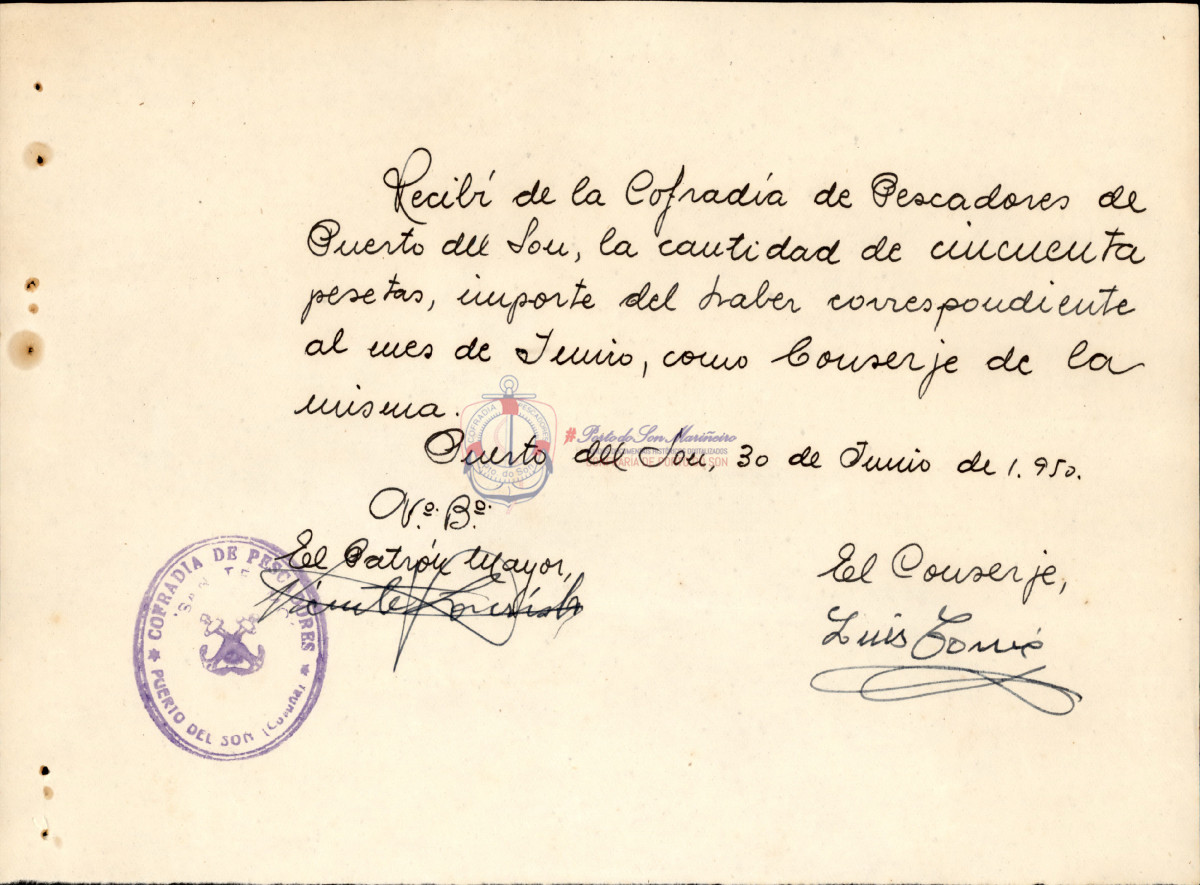 Recibí de la Cofradía de Pescadores de
Puerto del Son, la cantidad de cincuenta
pesetas, importe del haber correspondiente
al mes de Junio, como Conserje de la
misma.
Puerto del Son, 30 de Junio de 1.950.
Vº. Bº.
El Patrón Mayor,
Vicente
El Conserje,
Luis
COFRADIA DE PESCADORES
PUERTO DEL SON (Coruña)
COFRADIA PESCADORES
Pto. do Son
#PortodoSon Mariñeiro